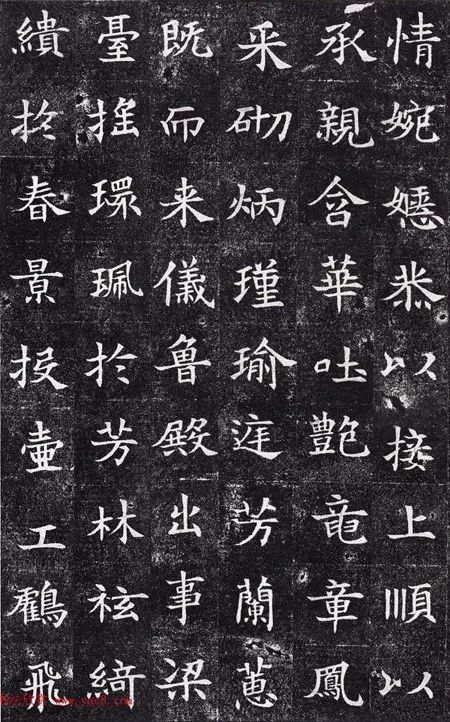 情婉嫕恭以接上順以
承親含華吐艷竜章鳳
采砌炳瑾瑜庭芳蘭蕙
既而来儀魯殿出事梁
臺搖環珮於芳林袨綺
繢於春景投壺工鶴飛
www.yac8.com